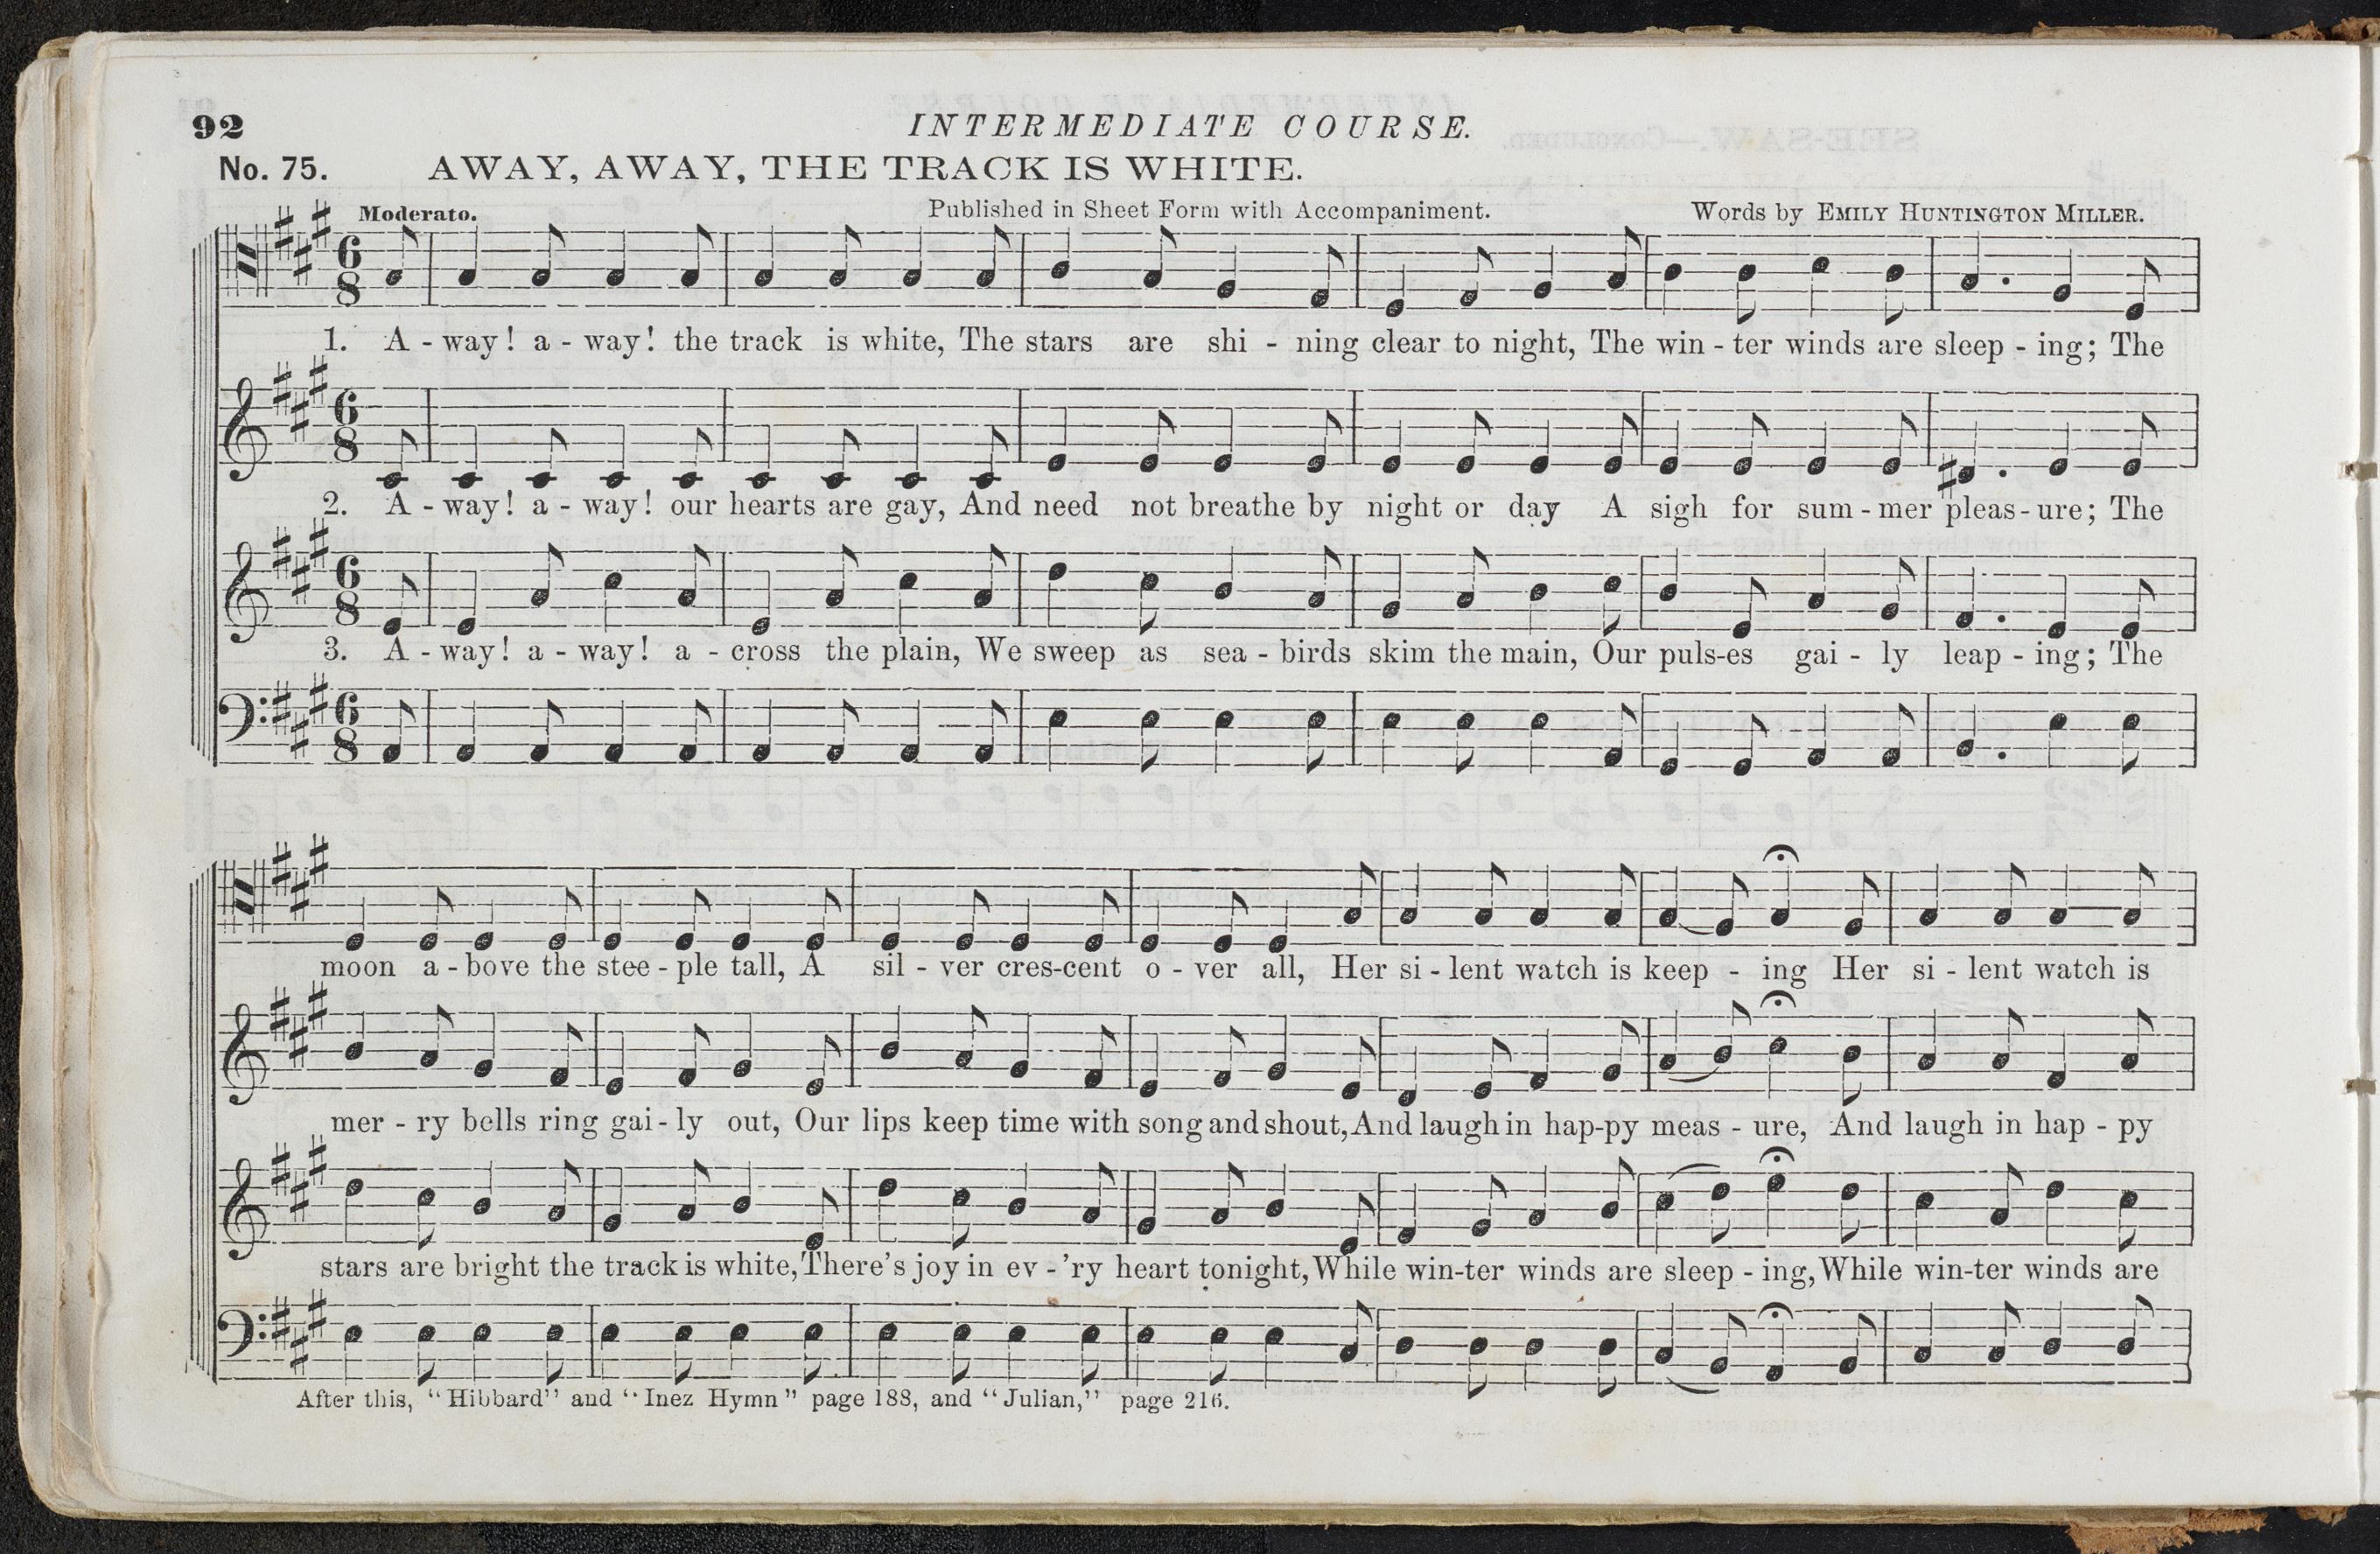 92
INTERMEDIATE COURSE.
No. 75. AWAY, AWAY, THE TRACK IS WHITE.
Moderato. Published in Sheet Form with Accompaniment. Words by EMILY HUNTINGTON MILLER.
6 8
1. A - way! a - way! the track is white, The stars are shi - ning clear to night, The win - ter winds are sleep - ing; The
6 8
2. A - way! a - way! our hearts are gay, And need not breathe by night or day A sigh for sum - mer pleas - ure; The
6 8
3. A - way! a - way! a - cross the plain, We sweep as sea - birds skim the main, Our puls-es gai - ly leap - ing; The
6 8
moon a - bove the stee - ple tall, A sil - ver cres-cent o - ver all, Her si - lent watch is keep - ing Her si - lent watch is
mer - ry bells ring gai - ly out, Our lips keep time with song and shout, And laugh in hap-py meas - ure, And laugh in hap - py
stars are bright the track is white, There's joy in ev - 'ry heart tonight, While win-ter winds are sleep - ing, While win-ter winds are
After this, "Hibbard" and "Inez Hymn" page 188, and "Julian," page 216.